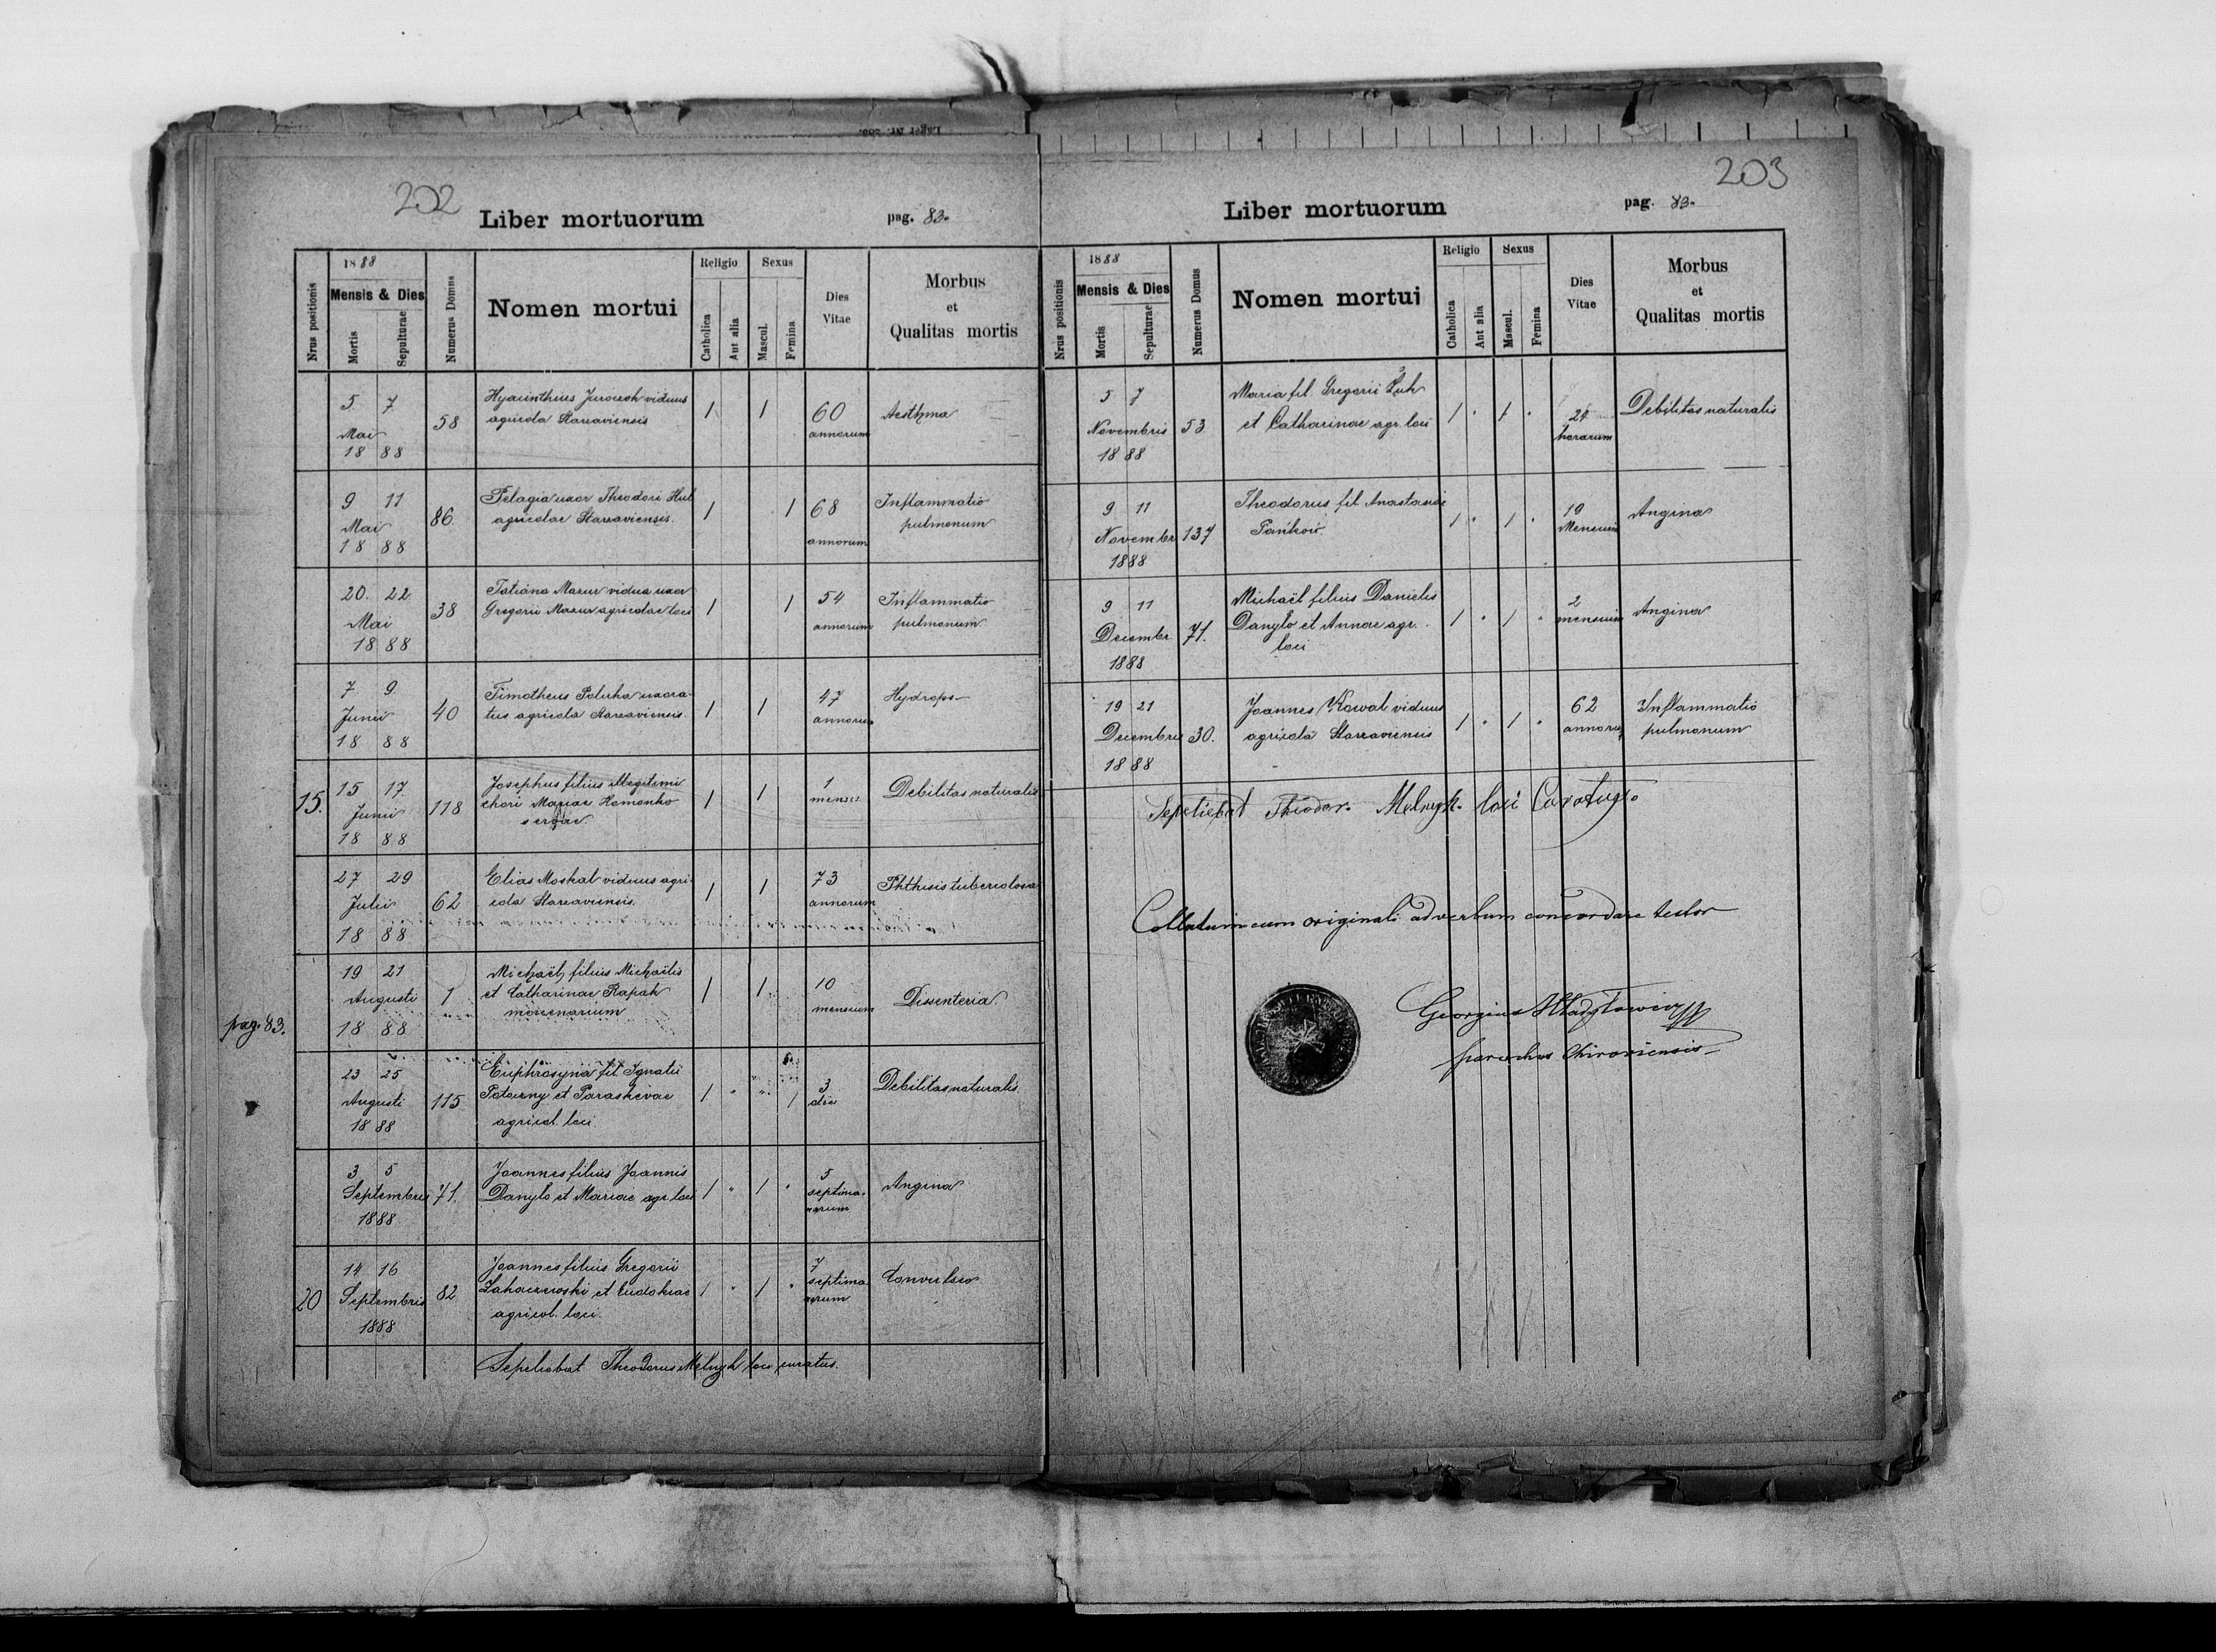 202
Liber mortuorum
pag. 83.
Nrus positionis
1888
Mensis & Dies
Mortis
Sepulturae
Numerus Domus
Nomen mortui
Religio
Catholica
Aut alia
Sexus
Mascul.
Femina
Dies
Vitae
Morbus
et
Qualitas mortis
5 7
Mai
1888
58
Hyacinthius viduus
agricola Starzaviensis
1 1
60
annorum
Aesthma
9 11
Mai
1888
86
Pelagia uxor Theodori Hul
agricolae Starzaviensis.
1 1
68
annorum
Inflammatio
pulmonum
20. 22
Mai
1888
38
Tatiana Mazur vidua uxor
Gregorii Mazur agricolae loci
1 1
54
annorum
Inflammatio
pulmonum
7 9
Junii
1888
40
Timotheus Paluha uxora-
tus agricola Starzaviensis
1 1
47
annorum
Hydrops
15.
15 17
Junii
1888
118
Josephus filius illegitimi
thori Mariae Homonko
servae.
1 1
1
mensis
Debilitas naturalis
27 29
Julii
1888
62
Elias Moskal viduus agri-
cola Starzaviensis.
1 1
73
annorum
Phthisis tuberculosa
pag. 83.
19 21
Augusti
1888
1
Michaël filius Michaëlis
et Catharinae Rapak
mercenarium
1 1
10
mensium
Dissenteria.
23 25
Augusti
1888
115
Euphrosyna fil Ignatii
et Paraskevae
agricol. loci.
1 " " 1
3
dies
Debilitas naturalis
3 5
Septembris
1888
71.
Joannes filius Joannis
Danylo et Mariae agr. loci
1 " 1 "
5
septima-
narum
Angina
20
14 16
Septembris
1888
82
Joannes filius Gregorii
et Eudokiae
agricol. loci.
1 " 1 "
7
septima
narum
Convulsio
Sepeliebat Theodorus Melnyk loci curatus.
203
Liber mortuorum
pag. 83.
Nrus positionis
1888
Mensis & Dies
Mortis
Sepulturae
Numerus Domus
Nomen mortui
Religio
Catholica
Aut alia
Sexus
Mascul.
Femina
Dies
Vitae
Morbus
et
Qualitas mortis
5 7
Novembris
1888
53
Maria fil. Gregorii
et Catharinae agr. loci
1 " 1 "
24
horarum
Debilitas naturalis
9 11
Novembr
1888
137
Theodorus fil Anastasiae
1 " 1 "
10
Mensium
Angina
9 11
Decembr.
1888
71.
Michaël filius Danielis
Danylo et Annae agr.
loci
1 " 1 "
2
mensium
Angina
19 21
Decembris
1888
30.
Joannes Kowal viduus
agricola Starzaviensis
1 " 1 "
62
annorum
Inflammatio
pulmonum
Sepeliebat Theodor. Melnyk. loci Curatus.
Collatum cum originali ad verbum concordare testor
Georgius
parochus Chiroviensis